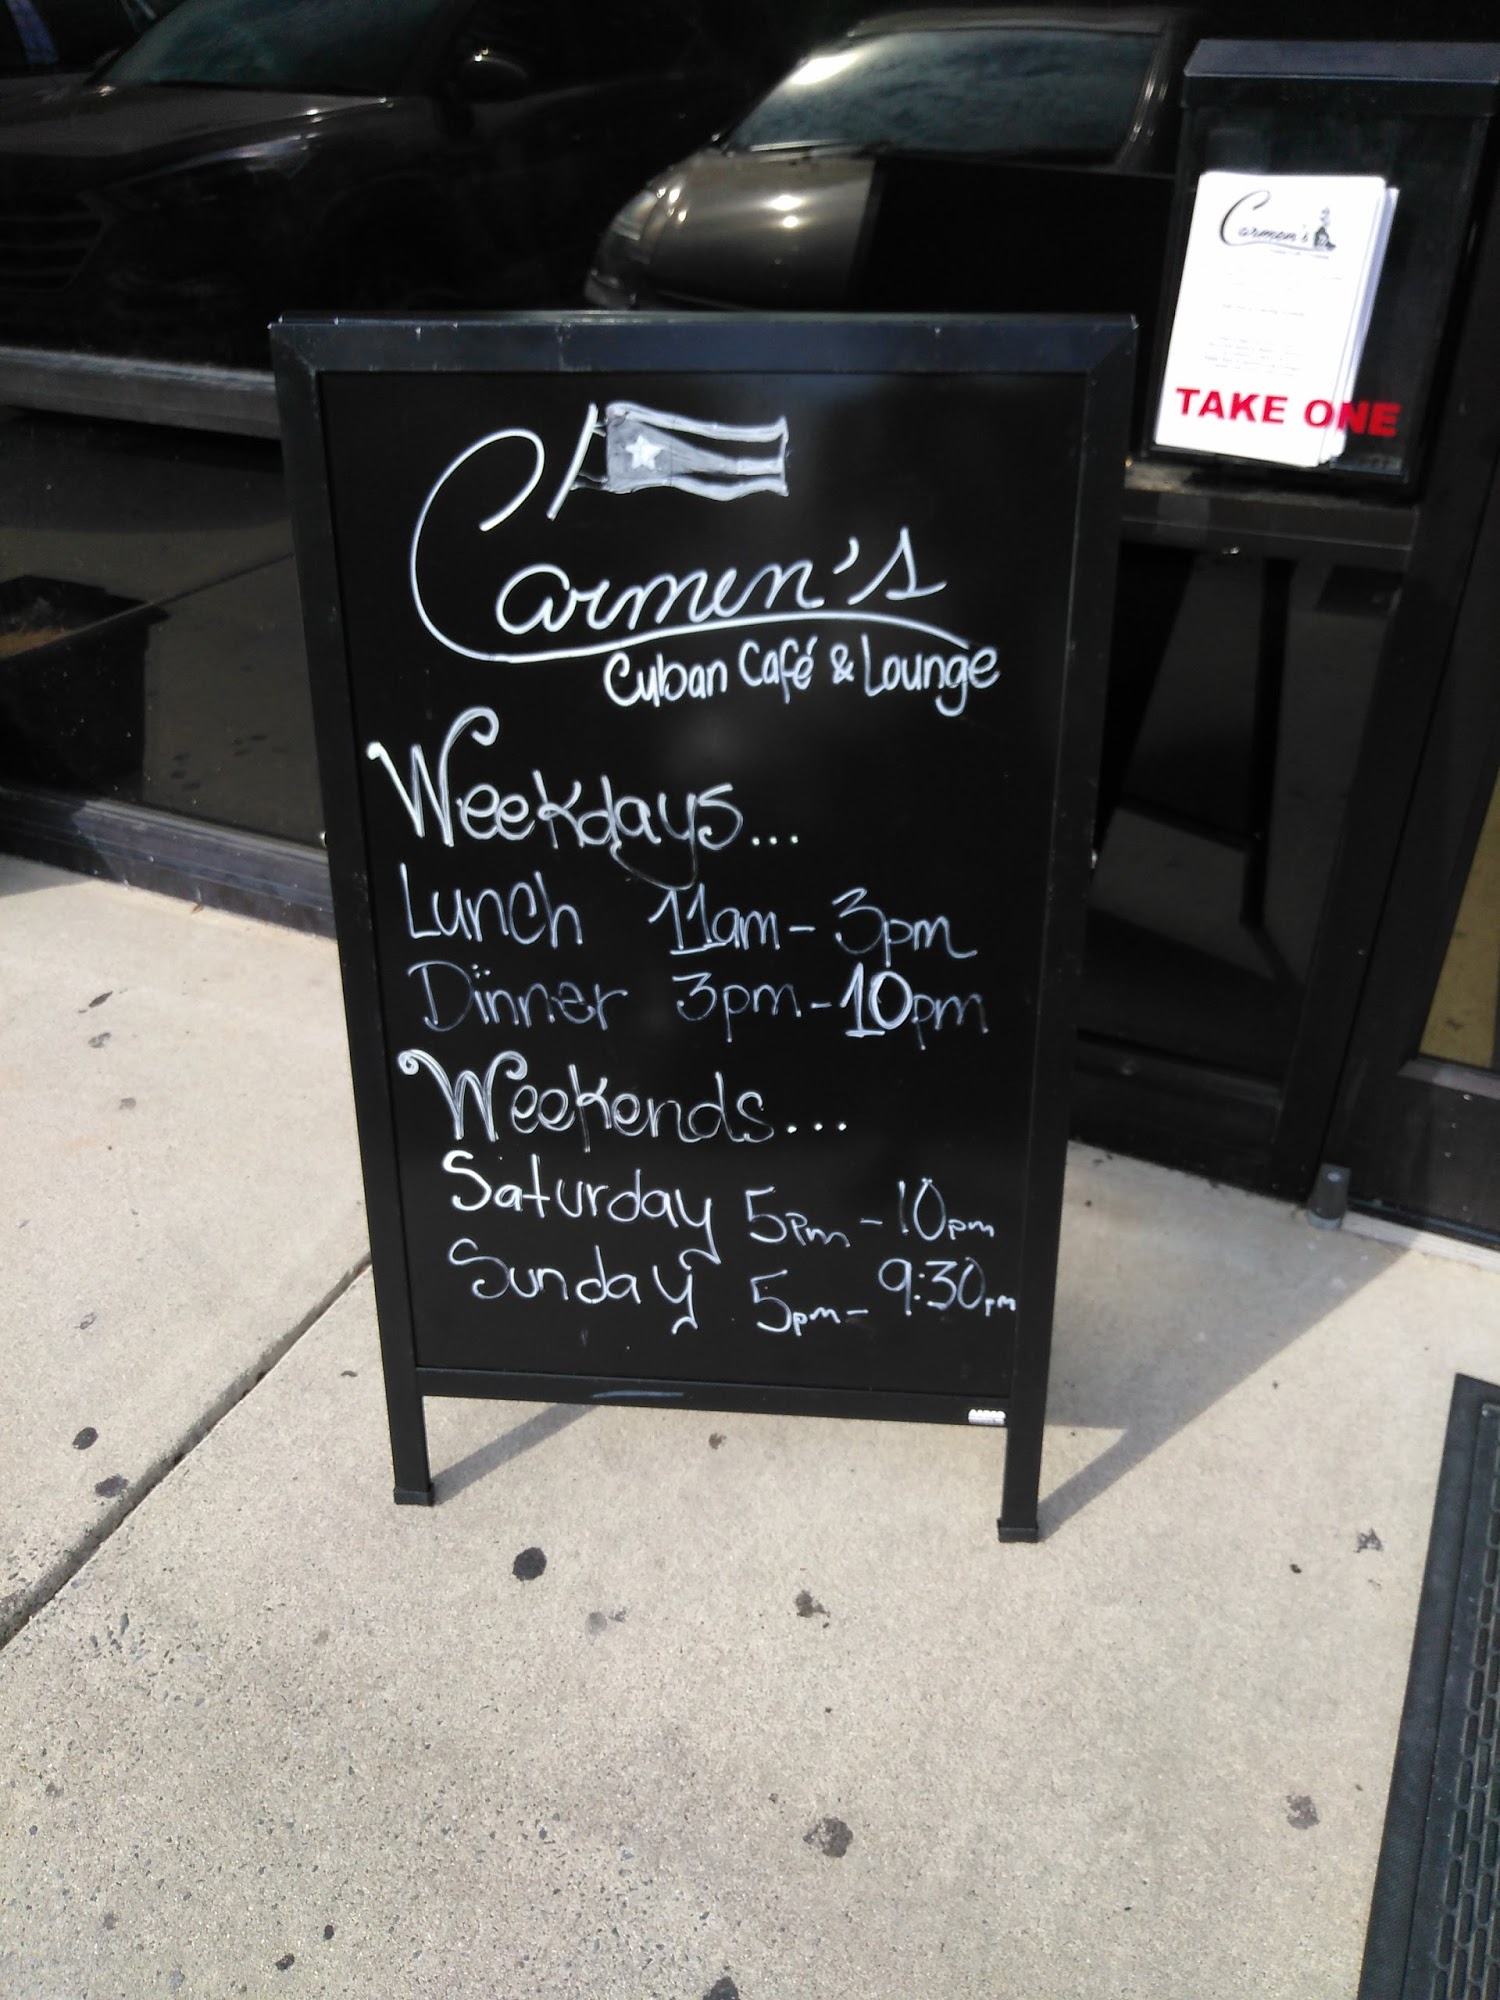 Carmen's
Cuban Café & Lounge
Weekdays...
Lunch 11am - 3pm
Dinner 3pm - 10pm
Weekends...
Saturday 5pm - 10pm
Sunday 5pm - 9:30pm
Carmen's
TAKE ONE